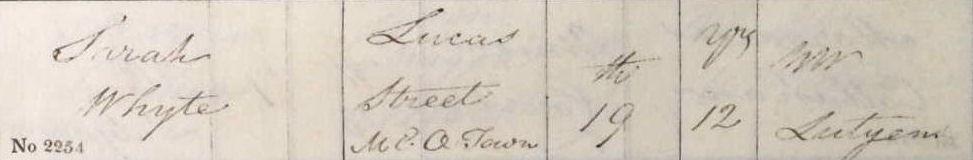 Sarah
Whyte
No 2254
Lucas
Street
M.C.O. Town
th
19
yrs
12
WW
Lutyens